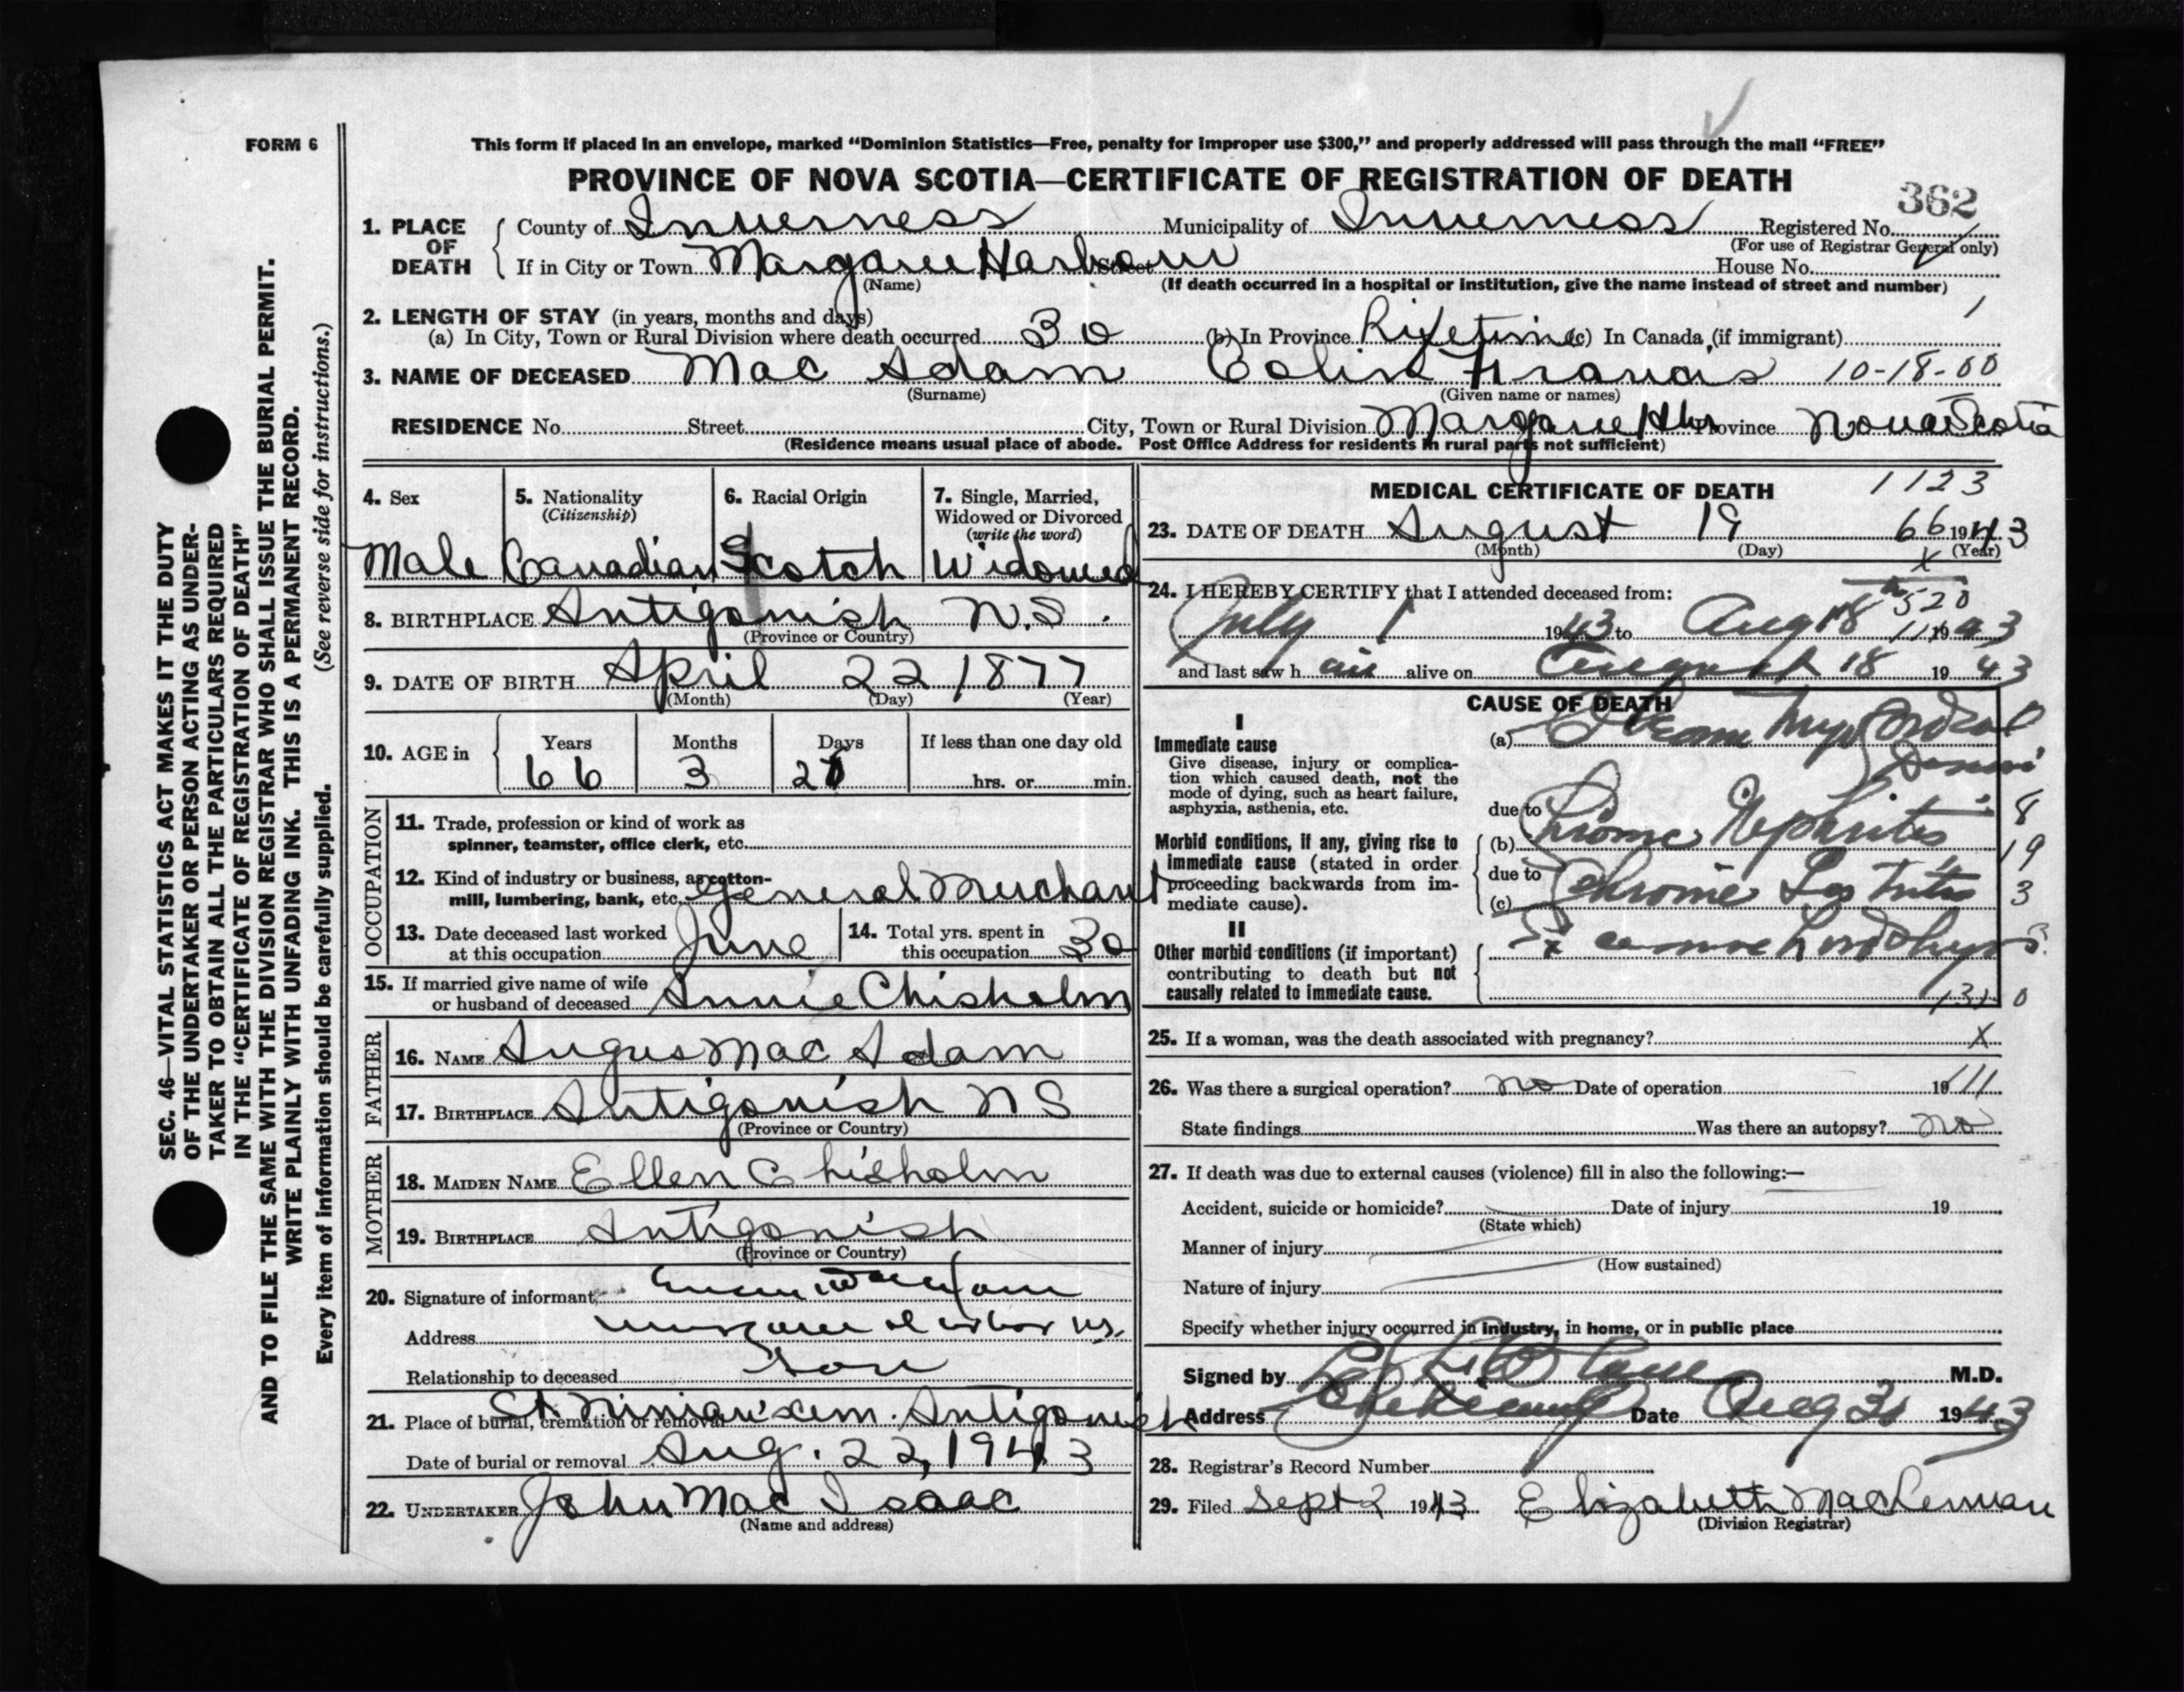 FORM 6
This form if placed in an envelope, marked “Dominion Statistics—Free, penalty for improper use $300,” and properly addressed will pass through the mail “FREE”
PROVINCE OF NOVA SCOTIA—CERTIFICATE OF REGISTRATION OF DEATH
362
1. PLACE OF DEATH County of Inverness Municipality of Inverness Registered No.
(For use of Registrar General only)
If in City or Town Margaree Harbour Street House No.
(Name) (If death occurred in a hospital or institution, give the name instead of street and number)
2. LENGTH OF STAY (in years, months and days)
(a) In City, Town or Rural Division where death occurred 30 (b) In Province Lifetime (c) In Canada (if immigrant) 1
3. NAME OF DECEASED Mac Adam Colin Francis 10-18-00
(Surname) (Given name or names)
RESIDENCE No. Street City, Town or Rural Division Margaree Hbr Province Nova Scotia
(Residence means usual place of abode. Post Office Address for residents in rural parts not sufficient)
4. Sex 5. Nationality (Citizenship) 6. Racial Origin 7. Single, Married, Widowed or Divorced (write the word)
Male Canadian Scotch Widowed
8. BIRTHPLACE Antigonish N.S.
(Province or Country)
9. DATE OF BIRTH April 22 1877
(Month) (Day) (Year)
10. AGE in Years Months Days If less than one day old
66 3 2 hrs. or min.
OCCUPATION
11. Trade, profession or kind of work as
spinner, teamster, office clerk, etc.
12. Kind of industry or business, as cotton-
mill, lumbering, bank, etc. General Merchant
13. Date deceased last worked
at this occupation June
14. Total yrs. spent in
this occupation 30
15. If married give name of wife
or husband of deceased Annie Chisholm
FATHER
16. NAME Angus Mac Adam
17. BIRTHPLACE Antigonish N S
(Province or Country)
MOTHER
18. MAIDEN NAME Ellen Chisholm
19. BIRTHPLACE Antigonish
(Province or Country)
20. Signature of informant
Address Margaree Harbor N.S.
Relationship to deceased Son
21. Place of burial, cremation or removal St. Ninian's Cem. Antigonish
Date of burial or removal Aug. 22, 1943
22. UNDERTAKER John Mac Isaac
(Name and address)
MEDICAL CERTIFICATE OF DEATH 1123
23. DATE OF DEATH August 19 66 1943
(Month) (Day) (Year)
x
24. I HEREBY CERTIFY that I attended deceased from:
520
July 1 1943 to Aug 18 1943
and last saw h im alive on August 18 1943
CAUSE OF DEATH
I
Immediate cause
Give disease, injury or complica-
tion which caused death, not the
mode of dying, such as heart failure,
asphyxia, asthenia, etc.
(a)
due to 8
Morbid conditions, if any, giving rise to
immediate cause (stated in order
proceeding backwards from im-
mediate cause).
(b) Chronic Nephritis 19
due to
(c) Chronic 3
II
Other morbid conditions (if important)
contributing to death but not
causally related to immediate cause.
25. If a woman, was the death associated with pregnancy? X
26. Was there a surgical operation? no Date of operation 19
State findings Was there an autopsy? no
27. If death was due to external causes (violence) fill in also the following:—
Accident, suicide or homicide? Date of injury 19
(State which)
Manner of injury
(How sustained)
Nature of injury
Specify whether injury occurred in industry, in home, or in public place
Signed by M.D.
Address Date Aug 31 1943
28. Registrar's Record Number
29. Filed Sept 2 1943 Elizabeth MacLennan
(Division Registrar)
SEC. 46—VITAL STATISTICS ACT MAKES IT THE DUTY
OF THE UNDERTAKER OR PERSON ACTING AS UNDER-
TAKER TO OBTAIN ALL THE PARTICULARS REQUIRED
IN THE “CERTIFICATE OF REGISTRATION OF DEATH”
AND TO FILE THE SAME WITH THE DIVISION REGISTRAR WHO SHALL ISSUE THE BURIAL PERMIT.
WRITE PLAINLY WITH UNFADING INK. THIS IS A PERMANENT RECORD.
Every item of information should be carefully supplied. (See reverse side for instructions.)